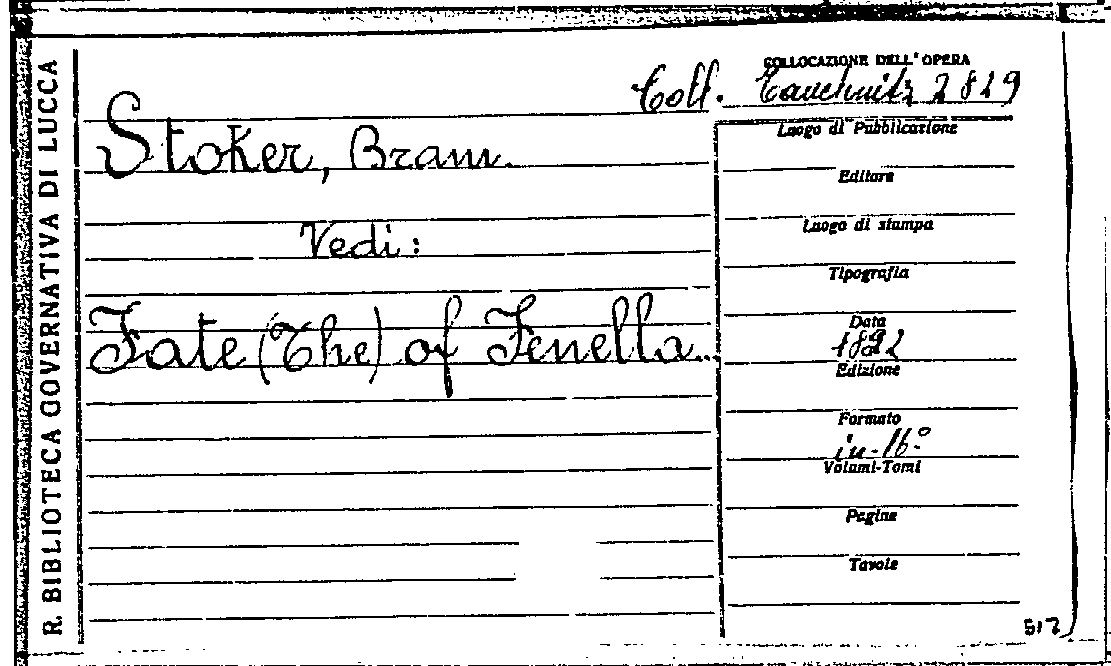 R. BIBLIOTECA GOVERNATIVA DI LUCCA
COLLOCAZIONE DELL' OPERA
Coll. Tauchnitz 2819
Stoker, Bram.
Vedi:
Fate (The) of Fenella..
Luogo di Pubblicazione
Editore
Luogo di stampa
Tipografia
Data
1892
Edizione
Formato
in-16°
Volumi-Tomi
Pagine
Tavole
517